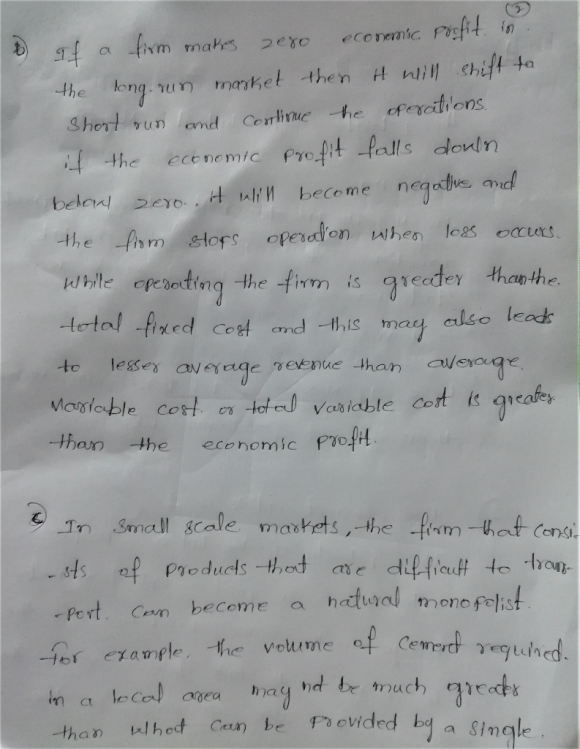 (2)
b) If a firm makes zero economic profit in
the long.run market then it will shift to
Short run and continue the operations.
if the economic profit falls down
below zero.. it will become negative and
the firm stops operation when loss occurs.
While operating the firm is greater than the.
total fixed cost and this may also leads
to lesser average revenue than average.
Variable cost. or total variable cost is greater
than the economic profit.
c) In small scale markets, the firm that consi-
-sts of products that are difficult to trans-
-port. Can become a natural monopolist.
for example. the volume of cement required.
in a local area may not be much greater
than what can be provided by a single.